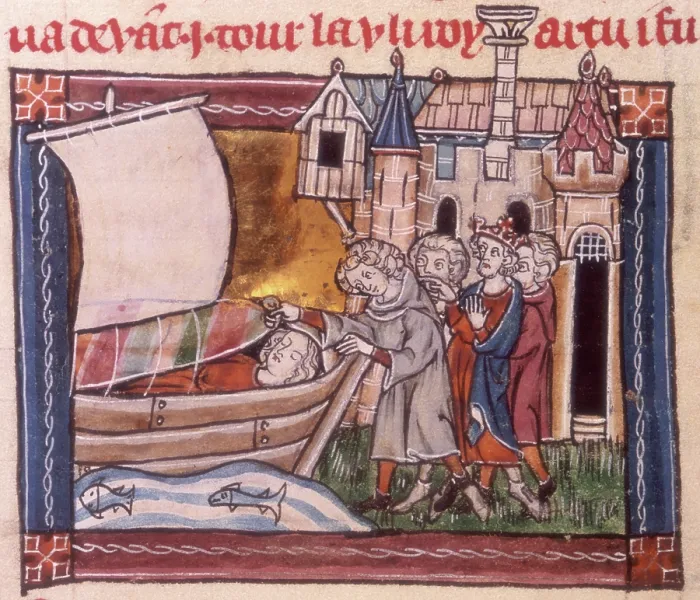 ua devãt ·j· tour la v li roy artu i fu